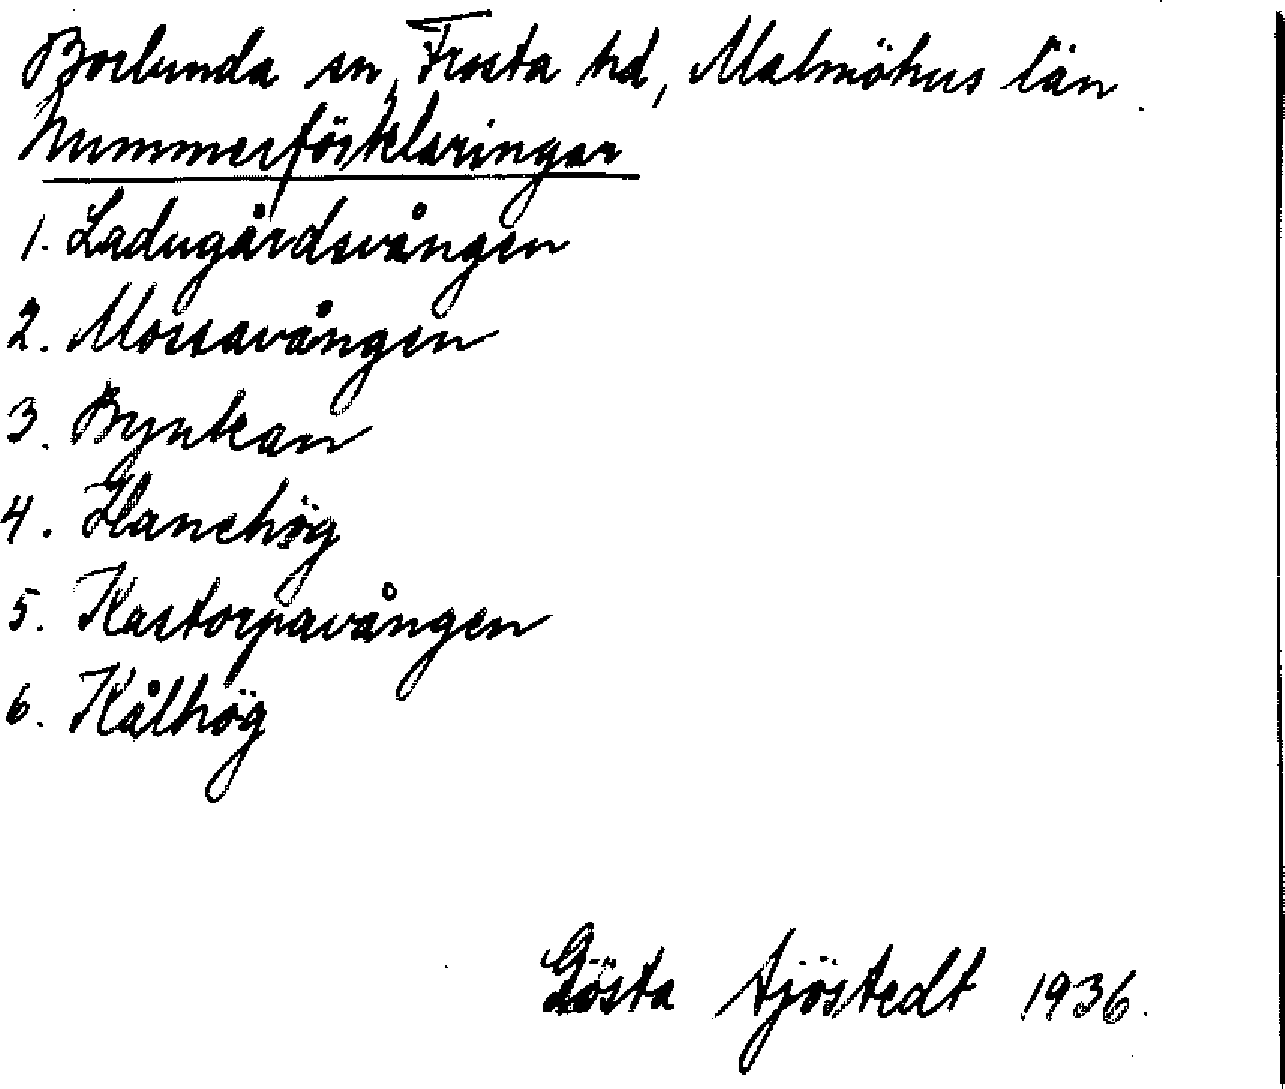 Borlunda sn, Frosta hd, Malmöhus län.
Nummerförklaringar
1. Ladugårdsvången
2. Mossavången
3. Bynkan
4. Hanehög
5. Kastorpavången
6. Kålhög
Gösta Sjöstedt 1936.